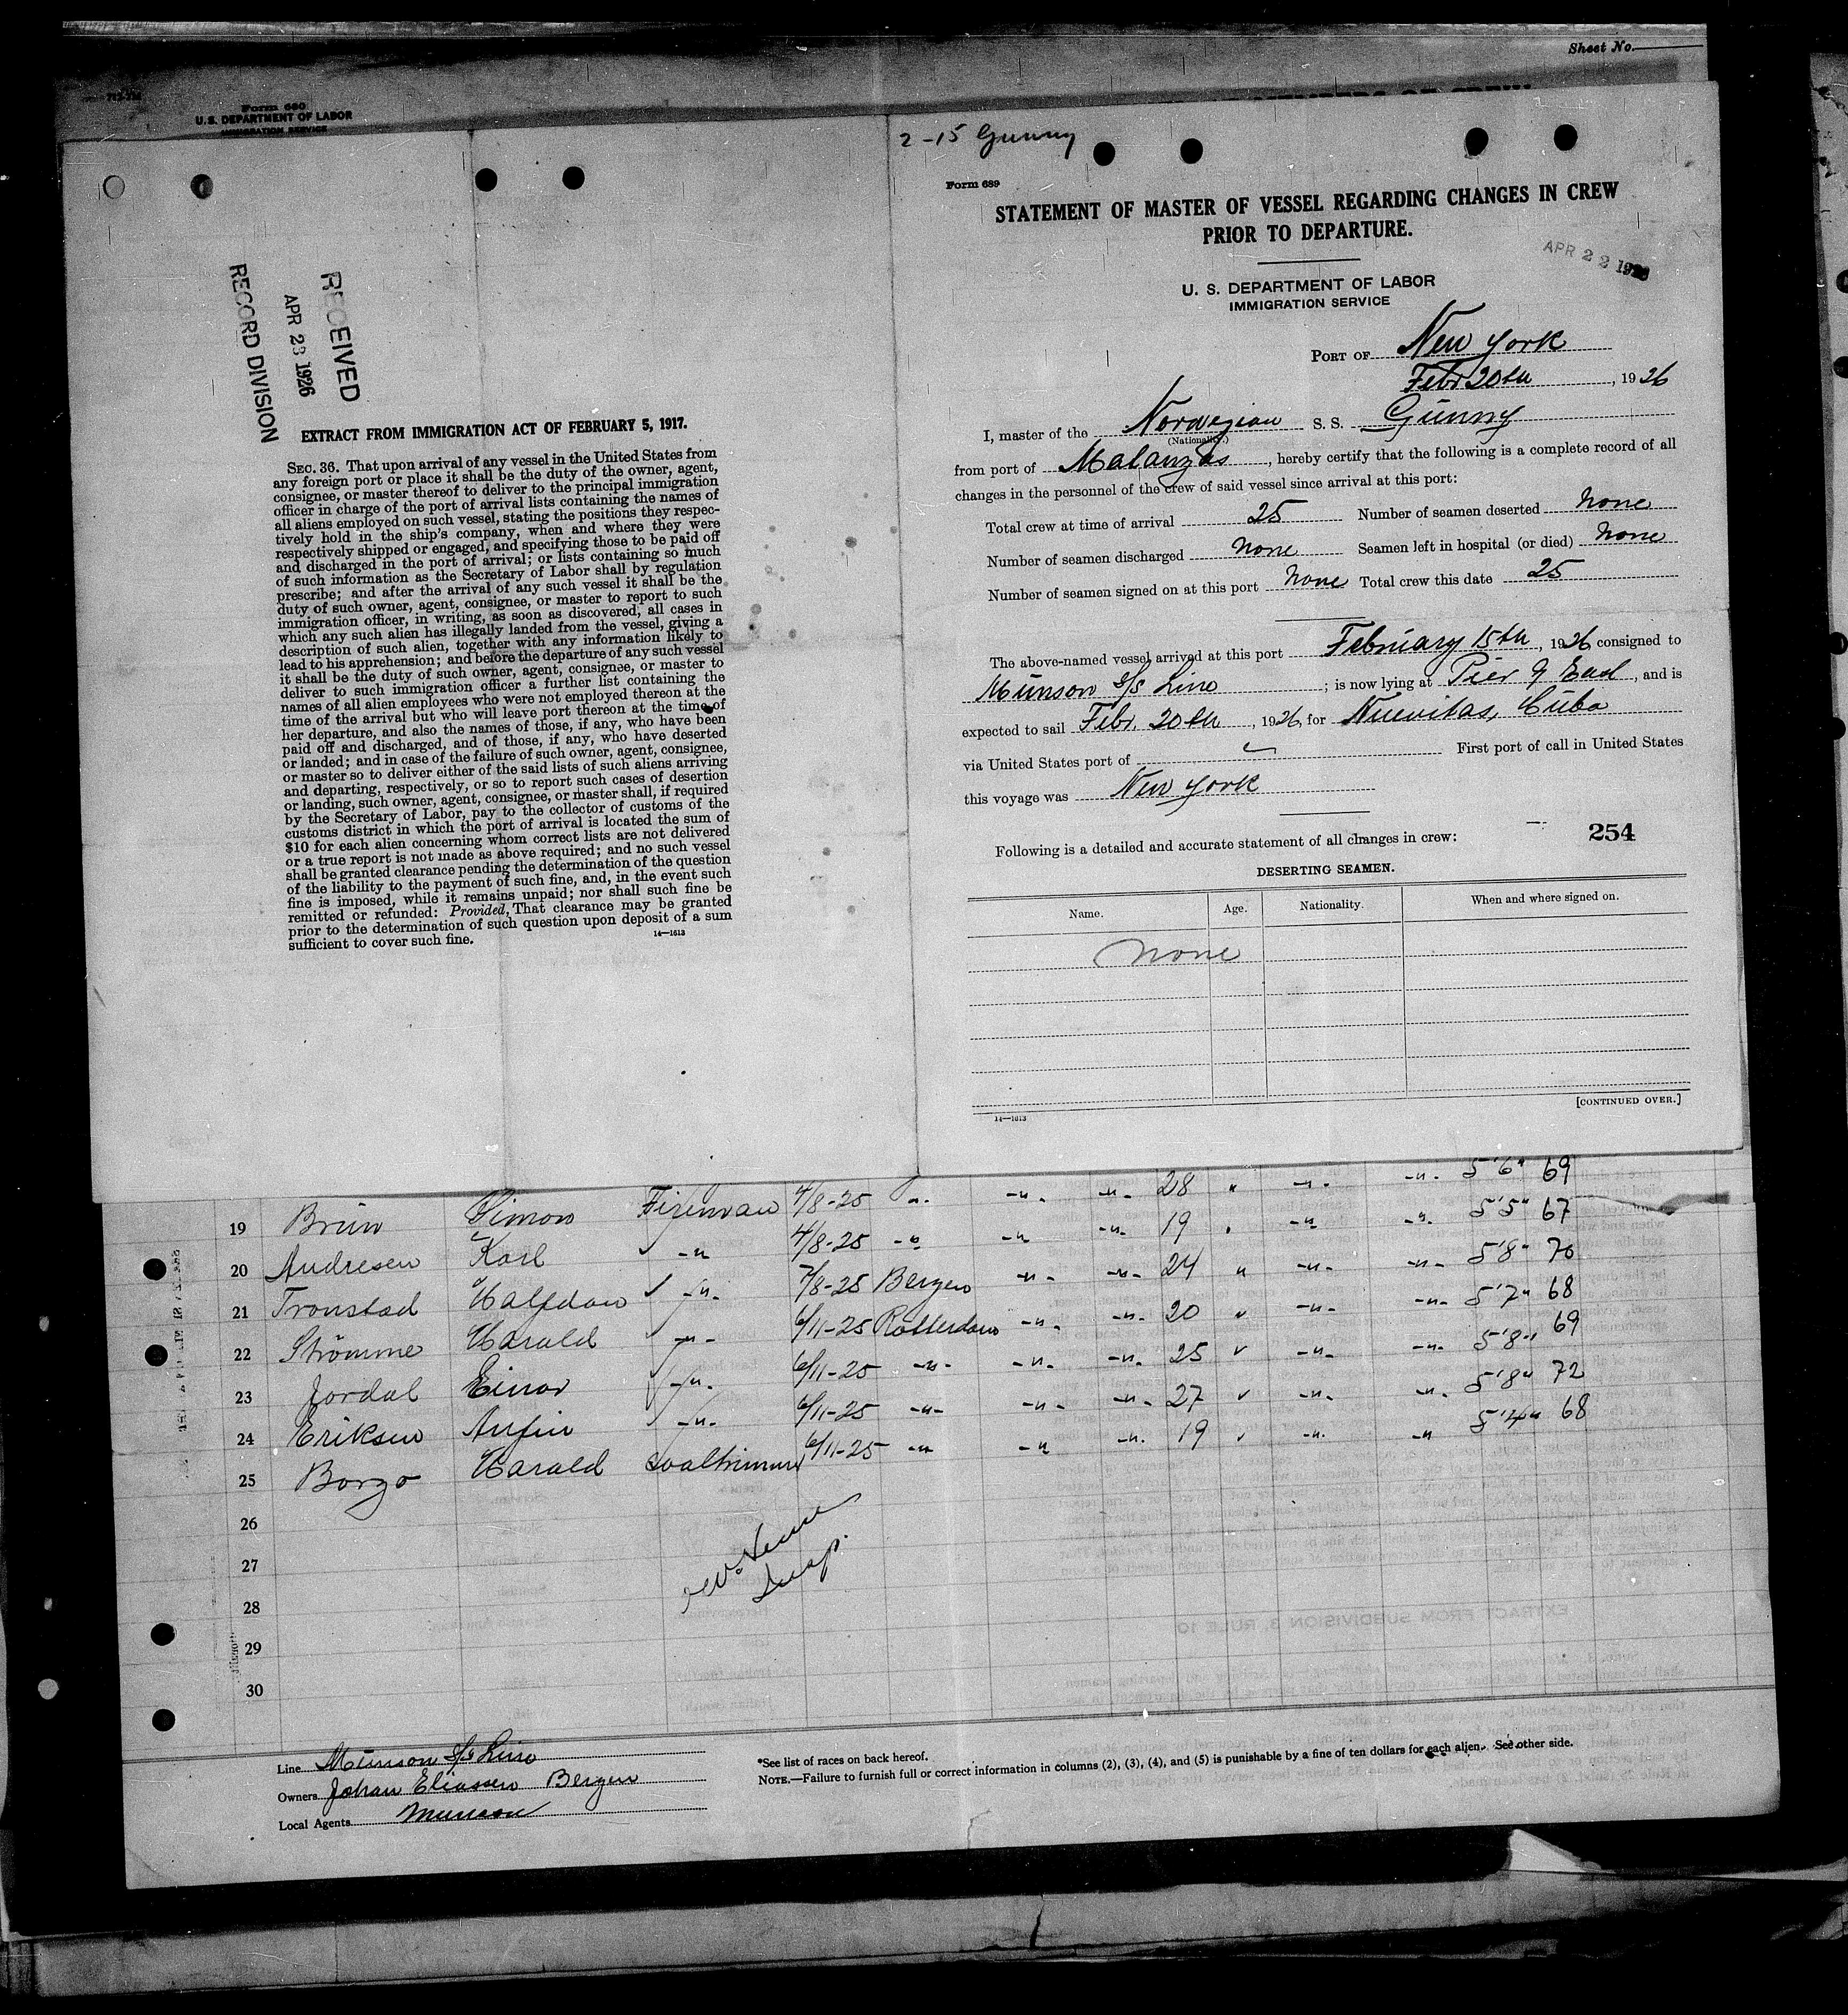 Sheet No.
Form 680
U.S. DEPARTMENT OF LABOR
IMMIGRATION SERVICE
RECEIVED
APR 23 1926
RECORD DIVISION
EXTRACT FROM IMMIGRATION ACT OF FEBRUARY 5, 1917.
SEC. 36. That upon arrival of any vessel in the United States from
any foreign port or place it shall be the duty of the owner, agent,
consignee, or master thereof to deliver to the principal immigration
officer in charge of the port of arrival lists containing the names of
all aliens employed on such vessel, stating the positions they respec-
tively hold in the ship's company, when and where they were
respectively shipped or engaged, and specifying those to be paid off
and discharged in the port of arrival; or lists containing so much
of such information as the Secretary of Labor shall by regulation
prescribe; and after the arrival of any such vessel it shall be the
duty of such owner, agent, consignee, or master to report to such
immigration officer, in writing, as soon as discovered, all cases in
which any such alien has illegally landed from the vessel, giving a
description of such alien, together with any information likely to
lead to his apprehension; and before the departure of any such vessel
it shall be the duty of such owner, agent, consignee, or master to
deliver to such immigration officer a further list containing the
names of all alien employees who were not employed thereon at the
time of the arrival but who will leave port thereon at the time of
her departure, and also the names of those, if any, who have been
paid off and discharged, and of those, if any, who have deserted
or landed; and in case of the failure of such owner, agent, consignee,
or master so to deliver either of the said lists of such aliens arriving
and departing, respectively, or so to report such cases of desertion
or landing, such owner, agent, consignee, or master shall, if required
by the Secretary of Labor, pay to the collector of customs of the
customs district in which the port of arrival is located the sum of
$10 for each alien concerning whom correct lists are not delivered
or a true report is not made as above required; and no such vessel
shall be granted clearance pending the determination of the question
of the liability to the payment of such fine, and, in the event such
fine is imposed, while it remains unpaid; nor shall such fine be
remitted or refunded: Provided, That clearance may be granted
prior to the determination of such question upon deposit of a sum
sufficient to cover such fine.
14—1613
2-15 Gunny
Form 689
STATEMENT OF MASTER OF VESSEL REGARDING CHANGES IN CREW
PRIOR TO DEPARTURE.
APR 22 1926
U. S. DEPARTMENT OF LABOR
IMMIGRATION SERVICE
PORT OF New York
Febr 20th, 1926
I, master of the Norwegian S. S. Gunny
(Nationality.)
from port of Matanzas, hereby certify that the following is a complete record of all
changes in the personnel of the crew of said vessel since arrival at this port:
Total crew at time of arrival 25 Number of seamen deserted None
Number of seamen discharged None Seamen left in hospital (or died) None
Number of seamen signed on at this port None Total crew this date 25
The above-named vessel arrived at this port February 15th, 1926 consigned to
Munson S/S Line; is now lying at Pier 9 East, and is
expected to sail Febr. 20th, 1926 for Nuevitas, Cuba
via United States port of First port of call in United States
this voyage was New York
Following is a detailed and accurate statement of all changes in crew: 254
DESERTING SEAMEN.
Name. Age. Nationality. When and where signed on.
None
14—1613
[CONTINUED OVER.]
19 Brun Simon Fireman 4/8-25 -"- -"- -"- 28 " -"- -"- 5'6" 69
20 Andresen Karl -"- 4/8-25 -"- -"- -"- 19 " -"- -"- 5'5" 67
21 Tronstad Halfdan -"- 7/8-25 Bergen -"- -"- 24 " -"- -"- 5'8" 70
22 Strömme Harald -"- 6/11-25 Rotterdam -"- -"- 20 " -"- -"- 5'7" 68
23 Jordal Einar -"- 6/11-25 -"- -"- -"- 25 " -"- -"- 5'8" 69
24 Eriksen Anfin -"- 6/11-25 -"- -"- -"- 27 " -"- -"- 5'8" 72
25 Borgo Harald Coaltrimmer 6/11-25 -"- -"- -"- 19 " -"- -"- 5'4" 68
26
27
28
29
30
Line Munson S/S Line
Owners Johan Eliassen Bergen
Local Agents Munson
*See list of races on back hereof.
NOTE.—Failure to furnish full or correct information in columns (2), (3), (4), and (5) is punishable by a fine of ten dollars for each alien. See other side.